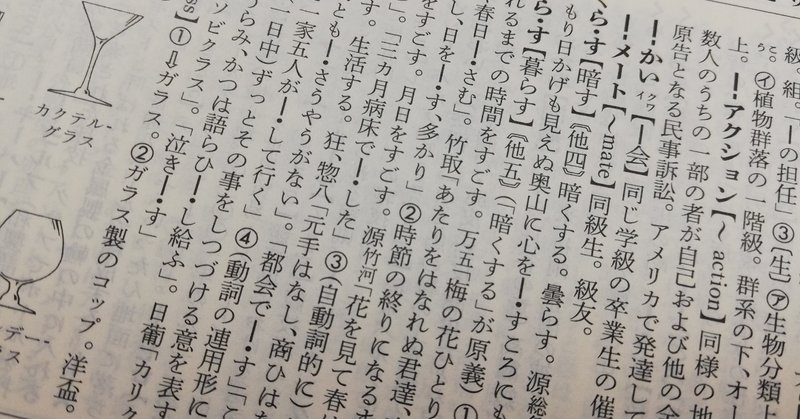 級。組。「―の担任」③〔生〕㋐生物分類
上。㋑植物群落の一階級。群系の下、オ
―アクション【～ action】同様の地
数人のうちの一部の者が自己および他の全
原告となる民事訴訟。アメリカで発達して
―かい クワイ【―会】同じ学級の卒業生の催
―メート【～mate】同級生。級友。
くら・す【暗す】《他四》暗くする。曇らす。源総
もり日かげも見えぬ奥山に心を―・すころにも
ら・す【暮らす】《他五》(「暗くする」が原義)①
れるまでの時間をすごす。万五「梅の花ひとり
春日―・さむ」。竹取「あたりをはなれぬ君達、
し、日を―・す、多かり」②時節の終りになるま
をすごす。月日をすごす。源竹河「花を見て春は
」。「三カ月病床で―・した」③(自動詞的に)
す。生活する。狂、惣八「元手はなし、商ひはな
とも―・さうやうがない」。「都会で―・す」「こ
一家五人が―・して行く」④(動詞の連用形に
(一日中)ずっとその事をしつづける意を表す
うらみ、かつは語らひ―・し給ふ」。日葡「カリク
ソビクラス」。「泣き―・す」
ss】①⇨ガラス。②ガラス製のコップ。洋盃。
カクテル-
グラス
デー-
ラス